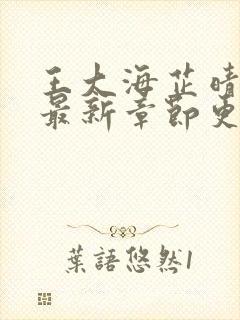 王大海芷晴
最新章節更
葉語悠然1